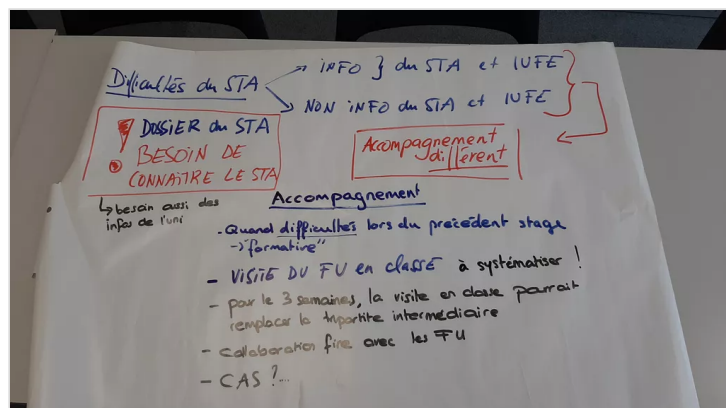 Difficultés du STA
→ INFO } du STA et IUFE
→ NON INFO du STA et IUFE
! DOSSIER du STA
BESOIN DE
CONNAÎTRE LE STA
Accompagnement
différent
↳ besoin aussi des
infos de l'uni
Accompagnement
- Quand difficultés lors du précédent stage
→ "formative"
- VISITE DU FU en classe à systématiser !
- pour le 3 semaines, la visite en classe pourrait
remplacer la tripartite intermédiaire
- Collaboration fine avec les FU
- CAS ?...